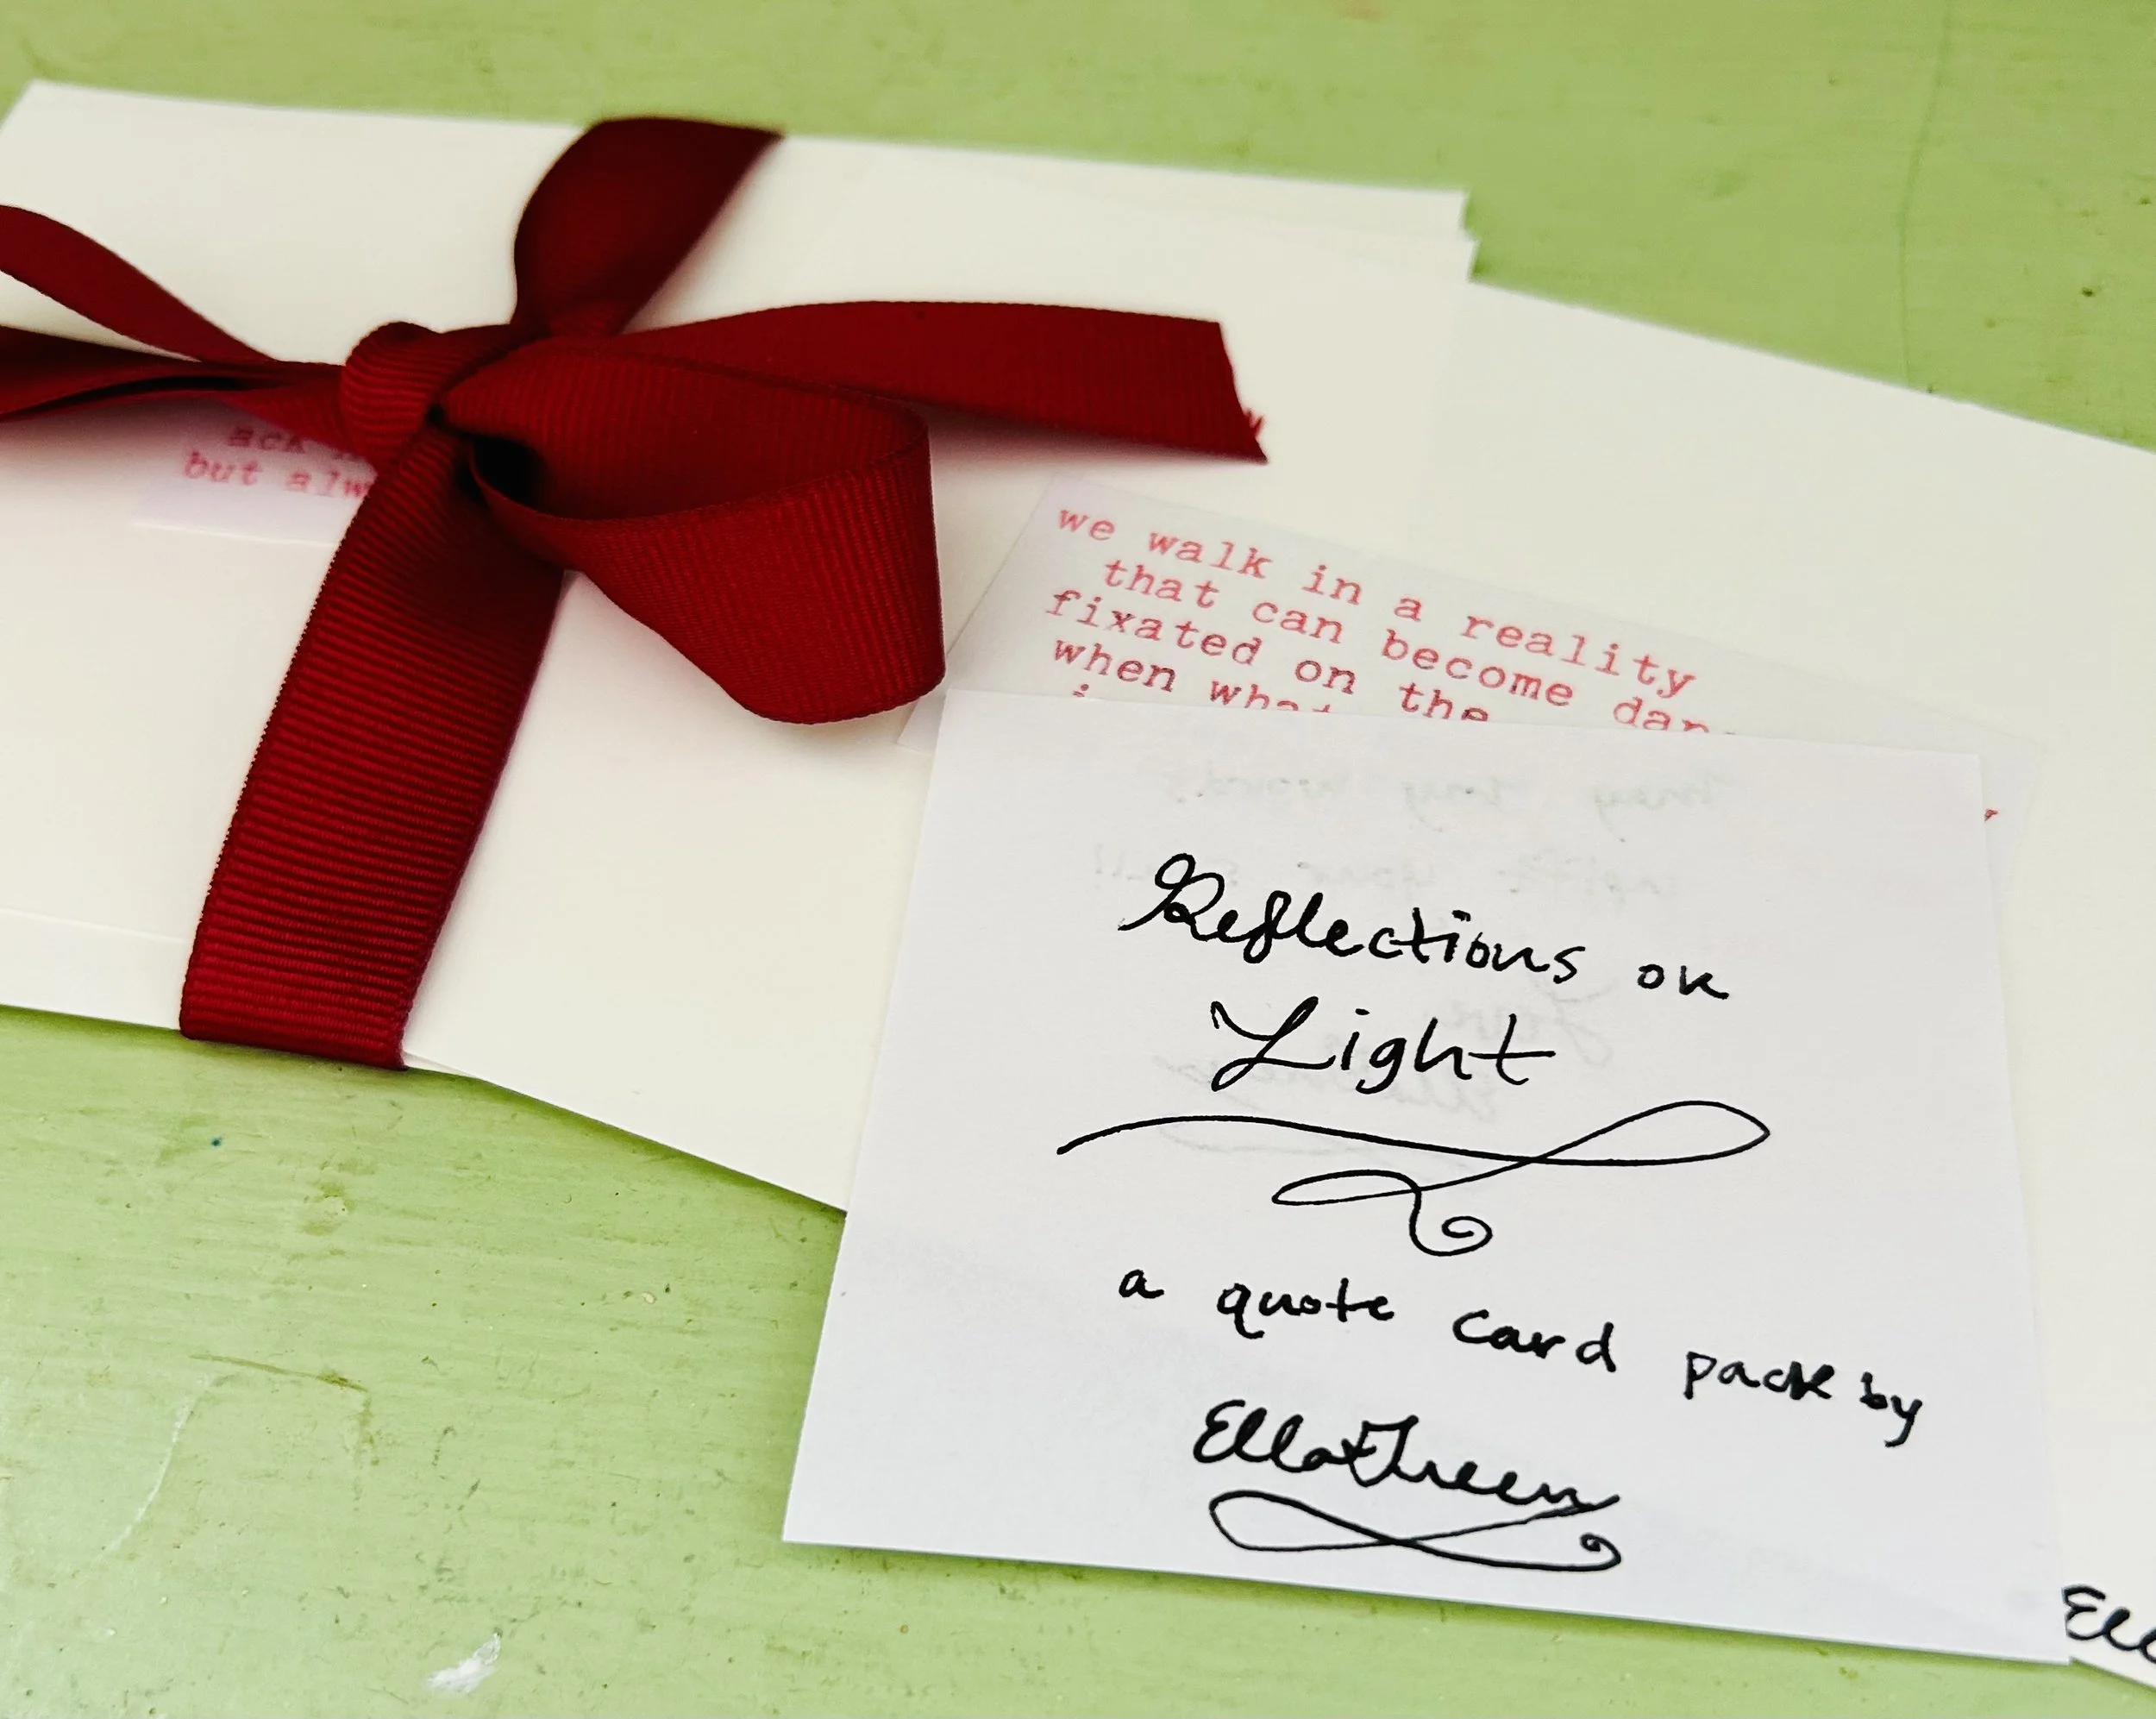 but
we walk in a reality
that can become
fixated on the
when
Reflections on
Light
a quote card pack by
EllaGreen